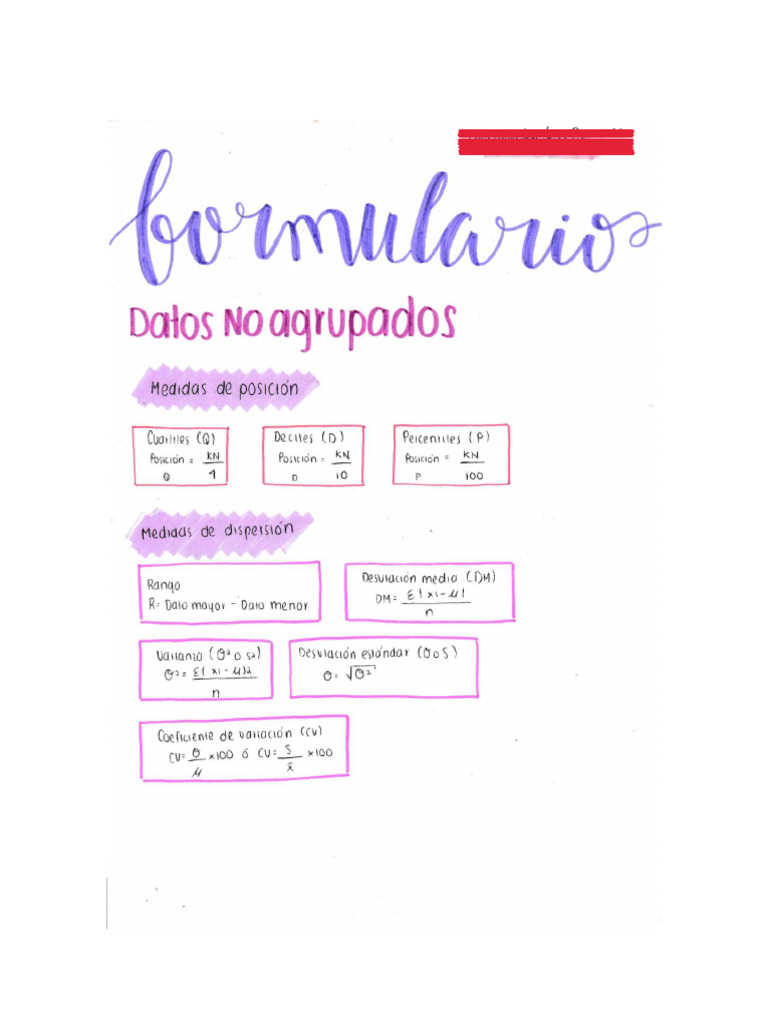 Formulario
Datos No agrupados
Medidas de posición
Cuartiles (Q)
Posición Q = KN/4
Deciles (D)
Posición D = KN/10
Percentiles (P)
Posición P = KN/100
Medidas de dispersión
Rango
R= Dato mayor - Dato menor
Desviación media (DM)
DM= Σ|xi-μ|/n
Varianza (σ² o s²)
σ²= Σ(xi-μ)2/n
Desviación estándar (σ o S)
σ= √σ²
Coeficiente de variación (CV)
CV= σ/μ x100 ó CV= S/x̄ x100